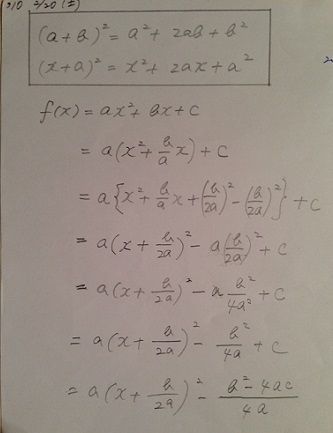 2/20 (土)
(a+b)² = a² + 2ab + b²
(x+a)² = x² + 2ax + a²
f(x) = ax² + bx + c
= a(x² + b/a x) + c
= a{x² + b/a x + (b/2a)² - (b/2a)²} + c
= a(x + b/2a)² - a(b/2a)² + c
= a(x + b/2a)² - a b²/4a² + c
= a(x + b/2a)² - b²/4a + c
= a(x + b/2a)² - b²-4ac/4a